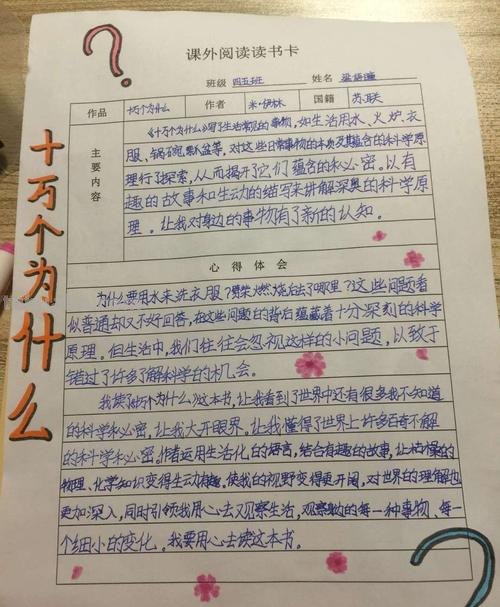 十万个为什么
课外阅读读书卡
班级 四五班 姓名
作品 十万个为什么 作者 米·伊林 国籍 苏联
主要内容
《十万个为什么》写了生活常见的事物,如生活用水、火炉、衣
服、锅碗瓢盆等,对这些日常事物的本质及其蕴含的科学原
理行了探索,从而揭开了它们蕴含的秘密。以有
趣的故事和生动的描写来讲解深奥的科学原
理。让我对身边的事物有了新的认知。
心得体会
为什么要用水来洗衣服?燃烧后去了哪里?这些问题看
似普通却又不好回答,在这些问题的背后蕴藏着十分深刻的科学
原理。但生活中,我们往往会忽视这样的小问题,以致于
错过了许多了解科学的机会。
我读《十万个为什么》这本书,让我看到了世界中还有很多我不知道
的科学秘密,让我大开眼界。让我懂得了世界上许多百奇不解
的科学秘密。作者运用生活化的语言,结合有趣的故事,让枯燥的
物理、化学知识变得生动有趣,使我的视野变得更开阔,对世界的理解也
更加深入,同时引领我用心去观察生活,观察身边的每一种事物、每一
个细小的变化。我要用心去读这本书。